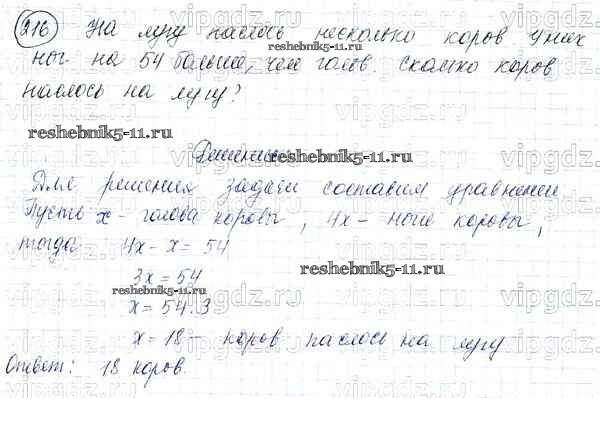 216 На лугу паслось несколько коров У них
ног на 54 больше, чем голов. Сколько коров
паслось на лугу?
reshebnik5-11.ru
reshebnik5-11.ru
Решение
reshebnik5-11.ru
Для решения задачи составим уравнение
Пусть x - голова коровы, 4x - ноги коровы,
тогда 4x - x = 54
3x = 54
reshebnik5-11.ru
reshebnik5-11.ru
x = 54:3
x = 18 - коров паслось на лугу
Ответ: 18 коров.
vipgdz.ru